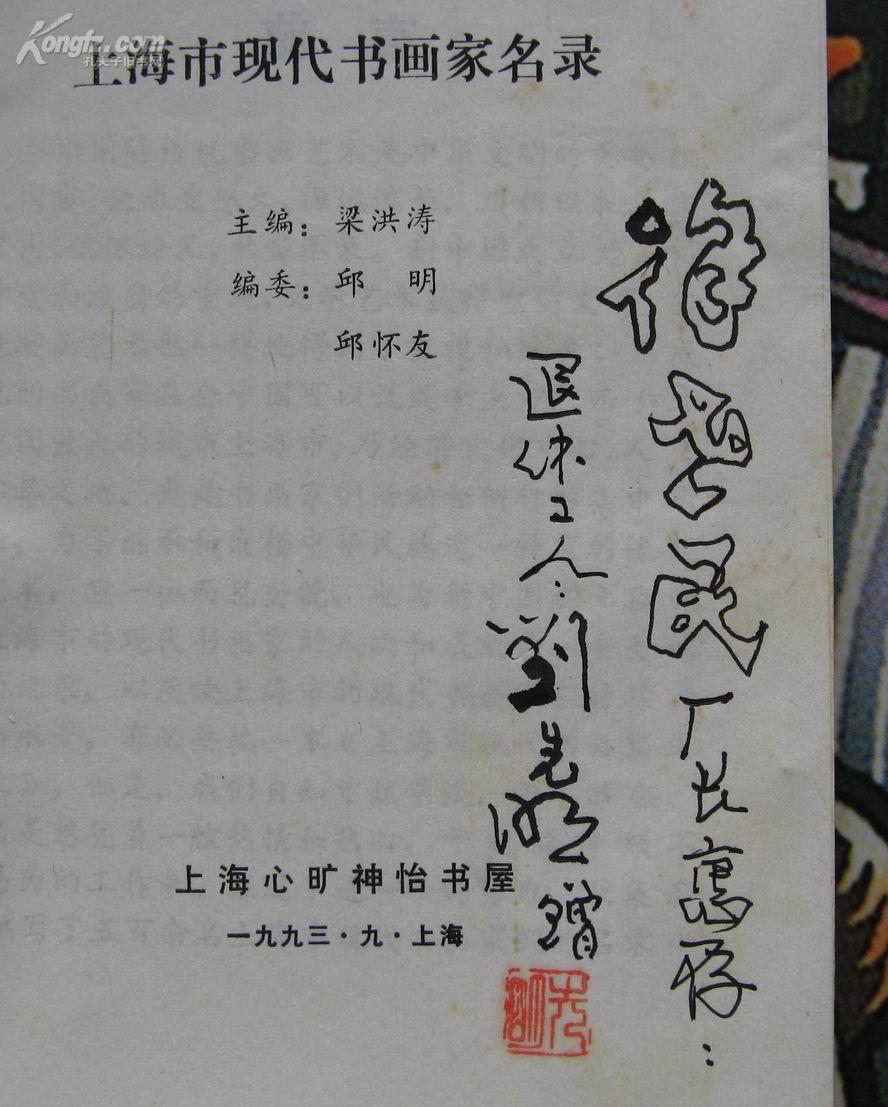 Kongfz.com
孔夫子旧书网
上海市现代书画家名录
主编：梁洪涛
编委：邱 明
邱怀友
上海心旷神怡书屋
一九九三·九·上海
民厂长惠存：
退休工人：劉先
贈